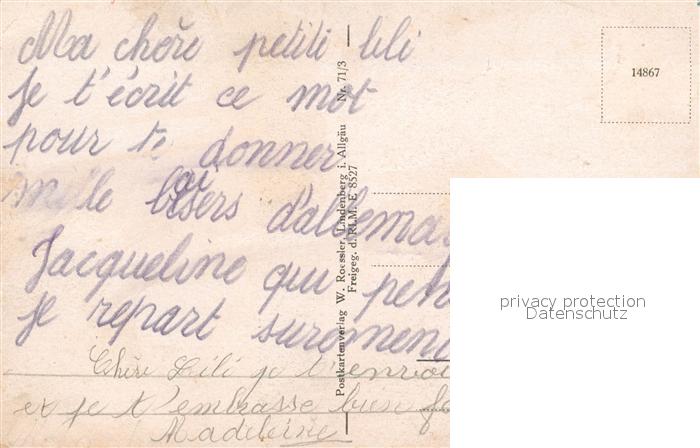 Ma chère petite lili
je t'écrit ce mot
pour te donner
mile baisers d'allema
Jacqueline qui pen
je repart surement
Chère Lili je t'envoi
et je t'embrasse bien
Madeleine
Postkartenverlag W. Roessler, Lindenberg i. Allgäu Nr. 71/3
Freigeg. d. RLM. E 8527
14867
privacy protection
Datenschutz